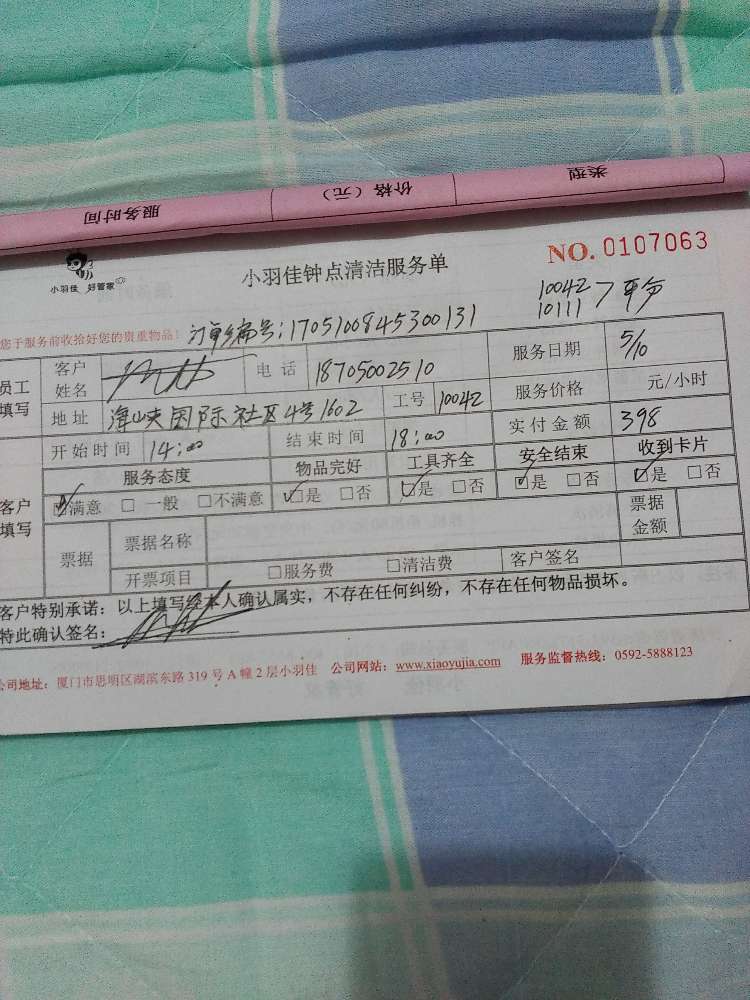 类型 价格（元） 服务时间
小羽佳 好管家
小羽佳钟点清洁服务单
NO. 0107063
您于服务前收拾好您的贵重物品！ 订单编号：1705100845300131
10042
10111
员工填写 客户姓名 电话 18705002510 服务日期 5/10
地址 海峡国际社区4号1602 工号 10042 服务价格 元/小时
客户填写 开始时间 14:00 结束时间 18:00 实付金额 398
服务态度 物品完好 工具齐全 安全结束 收到卡片
☑满意 □一般 □不满意 ☑是 □否 ☑是 □否 ☑是 □否 ☑是 □否
票据 票据名称 票据金额
开票项目 □服务费 □清洁费 客户签名
客户特别承诺：以上填写经本人确认属实，不存在任何纠纷，不存在任何物品损坏。
特此确认签名：
公司地址：厦门市思明区湖滨东路319号A幢2层小羽佳 公司网站：www.xiaoyujia.com 服务监督热线：0592-5888123